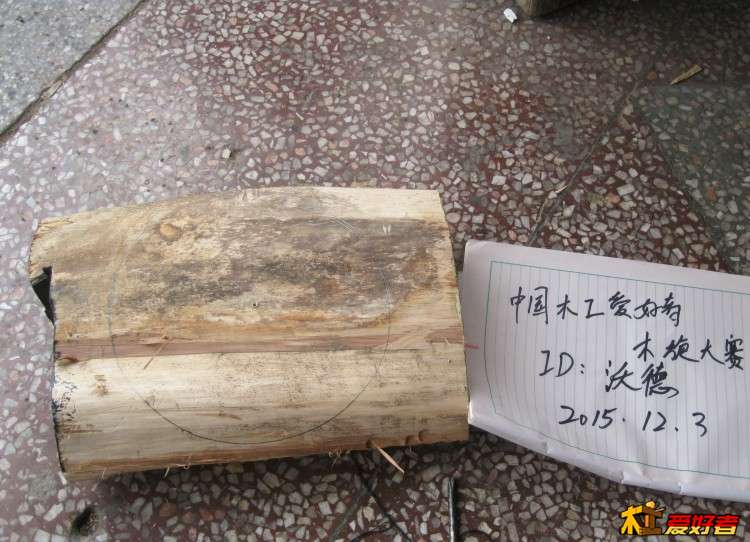 中国木工爱好者
木旋大赛
ID：沃德
2015.12.3
木工爱好者